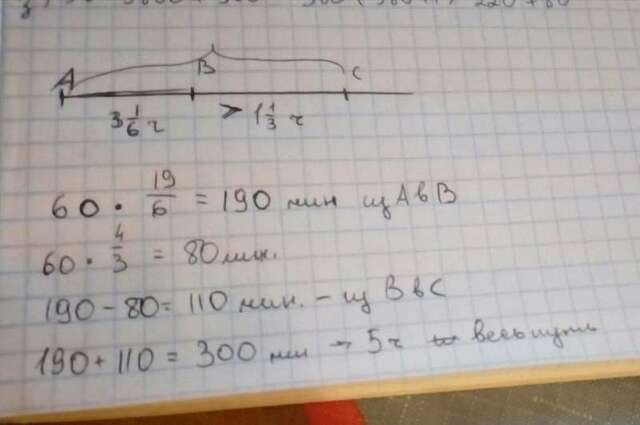 A B C
3 1/6 ч > 1 1/3 ч
60 · 19/6 = 190 мин из A в B
60 · 4/3 = 80 мин.
190 - 80 = 110 мин. - из B в C
190 + 110 = 300 мин → 5ч весь путь